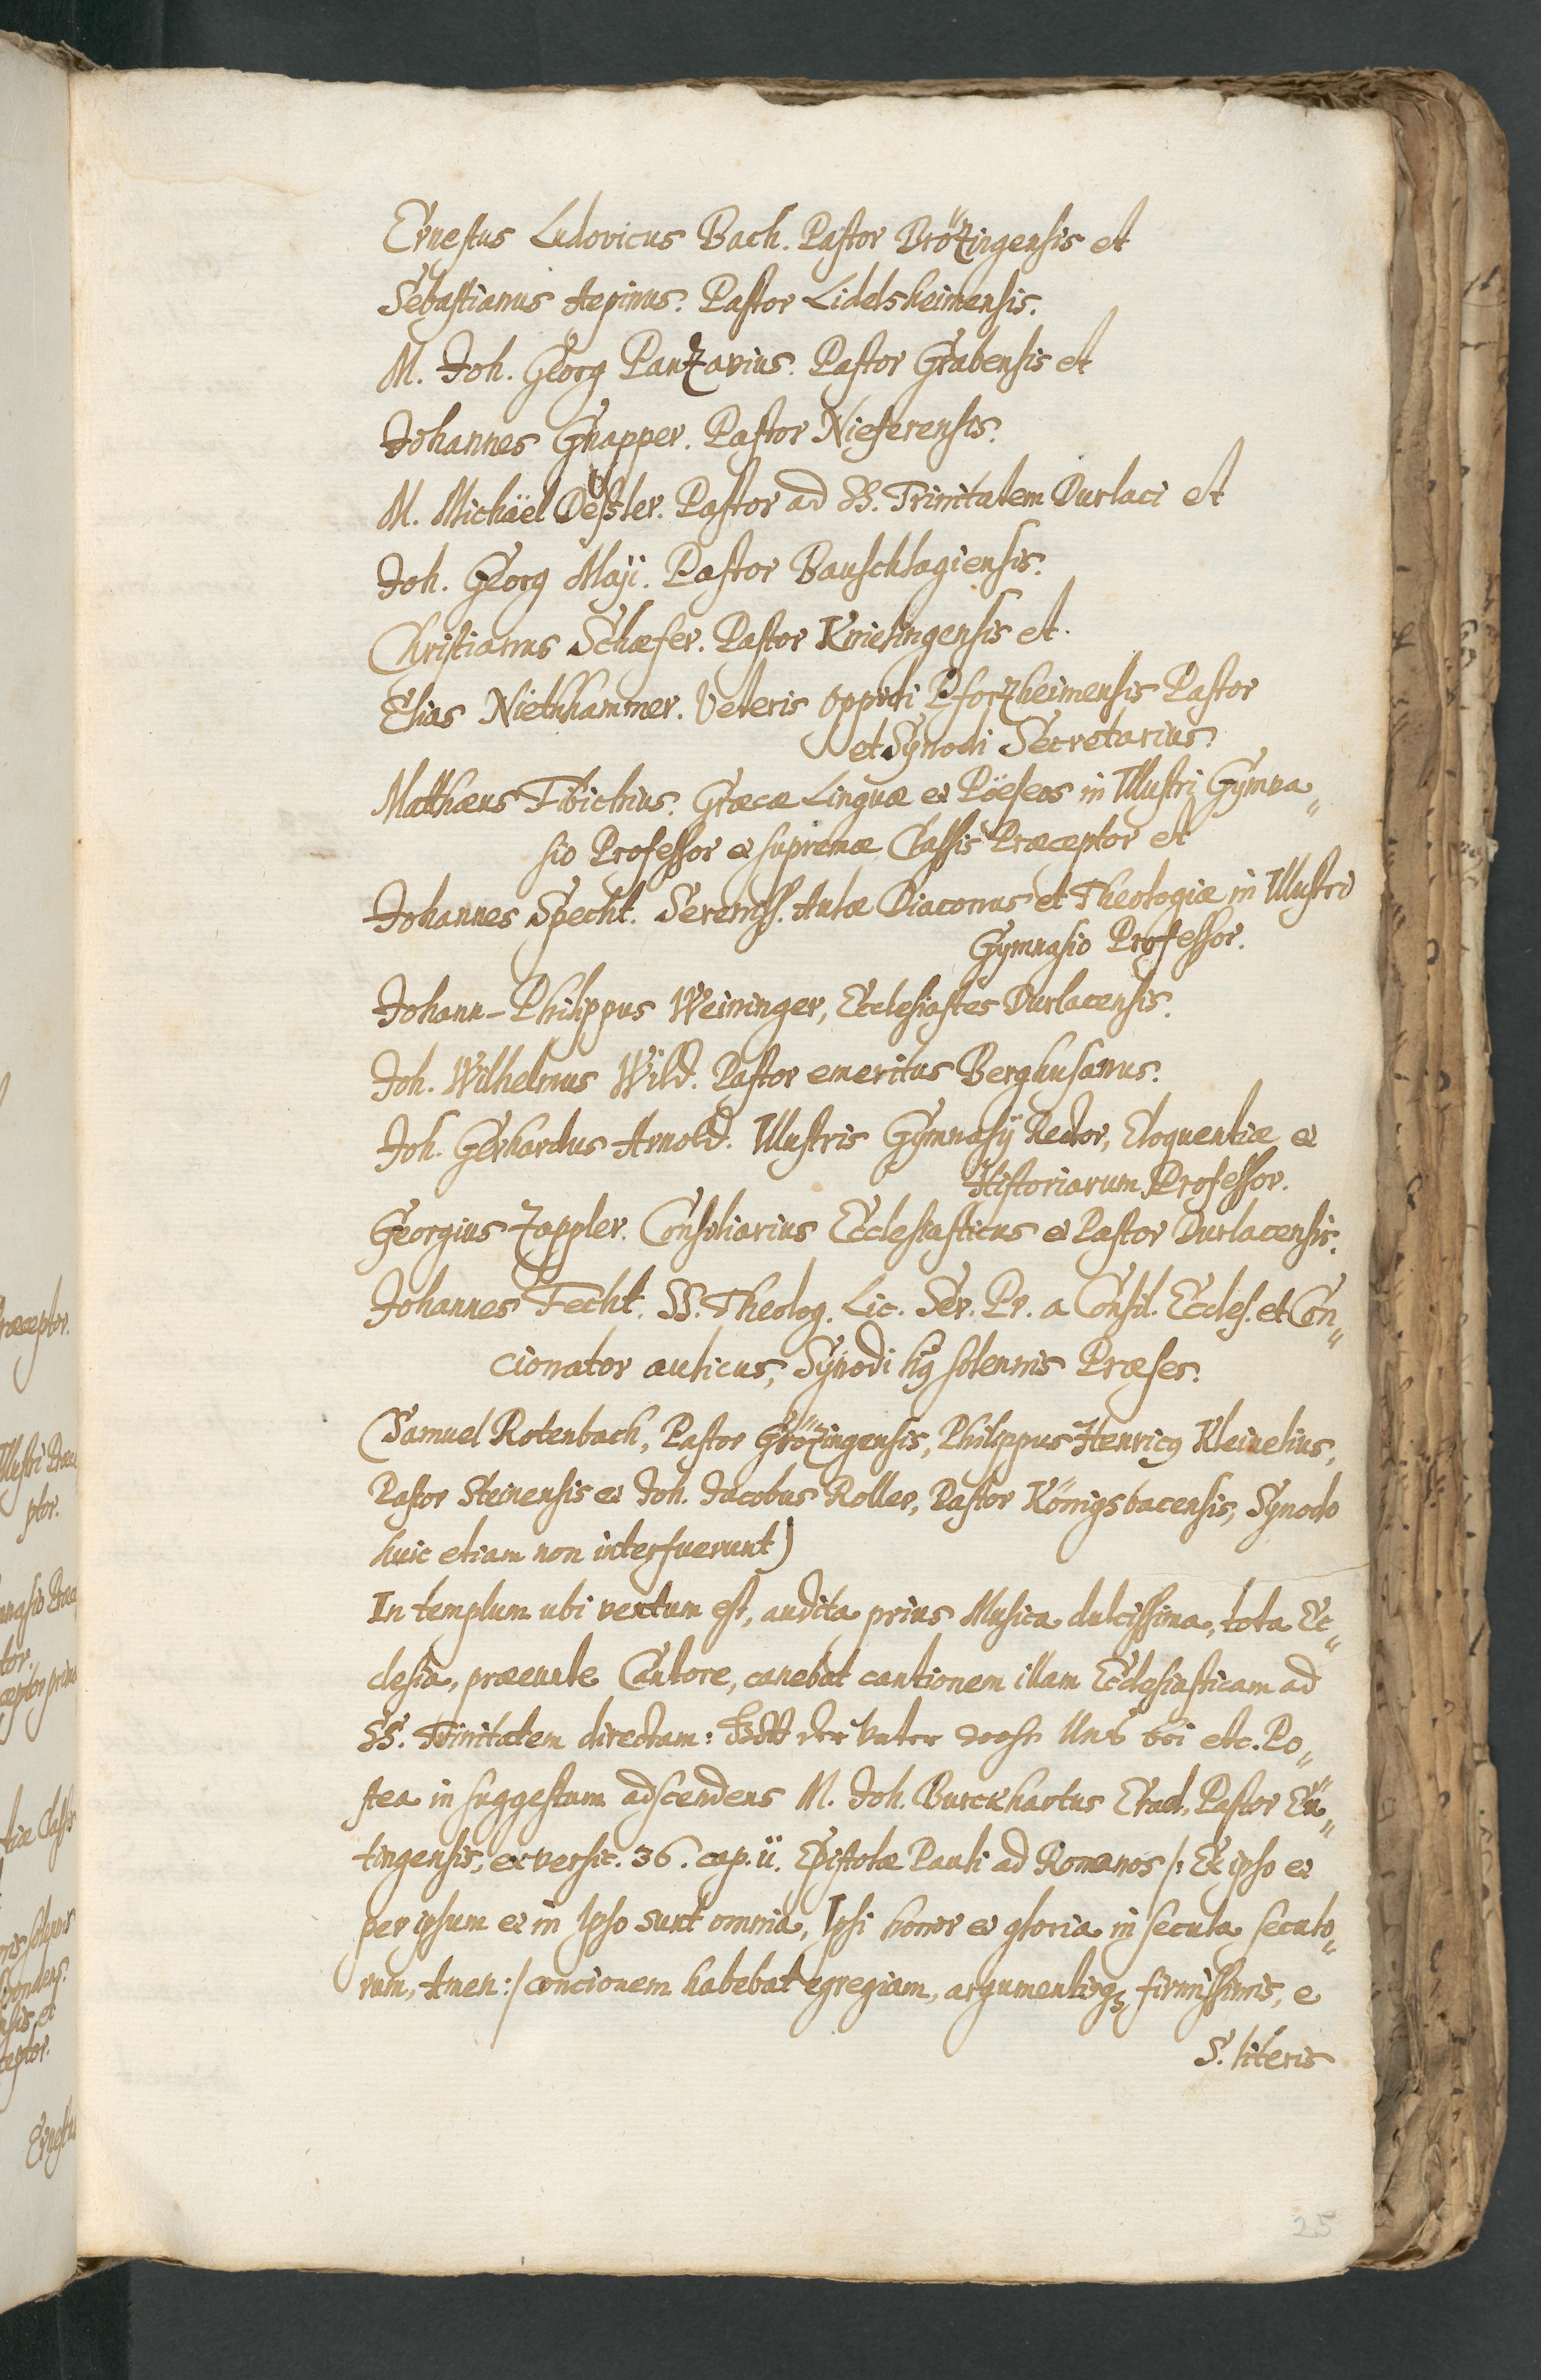 Ernestus Ludovicus Bach. Pastor Brözingensis et
Sebastianus Aepinus. Pastor Lidelsheimensis.
M. Joh. Georg Panzavius. Pastor Grabensis et
Johannes Gnapper. Pastor Nieferensis.
M. Michäel Deßler. Pastor ad SS. Trinitatem Durlaci et
Joh. Georg Maji. Pastor Bauschlagiensis.
Christianus Schæfer. Pastor Knielingensis et.
Elias Niethhammer. Veteris oppidi Pforzheimensis Pastor
et Synodi Secretarius.
Matthæus Tibichius. Græcæ Linguæ et Pöeseos in Illustri Gymna„
sio Professor et supremæ Classis Præceptor et
Johannes Specht. Sereniss. Aulæ Diaconus et Theologiæ in Illustri
Gymnasio Professor.
Johann-Philippus Weininger, Ecclesiastes Durlacensis.
Joh. Wilhelmus Wild. Pastor emeritus Berghusanus.
Joh. Gerhardus Arnold. Illustris Gymnasij Rector, Eloquentiæ et
Historiarum Professor.
Georgius Zappler. Consiliarius Ecclesiasticus et Pastor Durlacensis.
Johannes Fecht. SS. Theolog. Lic. Ser. Pr. a Consil. Eccles. et Con„
cionator aulicus, Synodi hujus solennis Præses.
(Samuel Rotenbach, Pastor Grözingensis, Philippus Henricus Kleinelius,
Pastor Steinensis et Joh. Jacobus Roller, Pastor Königsbacensis, Synodo
huic etiam non interfuerunt)
In templum ubi ventum est, audita prius Musica dulcissima, tota Ec„
clesia, præeunte Cantore, canebat cantionem illam Ecclesiasticam ad
SS. Trinitatem directam: Gott der Vater wohn Uns bei etc. Po„
stea in suggestum adscendens M. Joh. Burckhartus Erad, Pastor Eü„
tingensis, ex versic. 36. cap. ii. Epistolæ Pauli ad Romanos /: Ex ipso et
per ipsum et in Ipso sunt omnia, Ipsi honor et gloria in secula seculo„
rum, Amen :/ concionem habebat egregiam, argumentisque firmissimis, e
S. literis
25